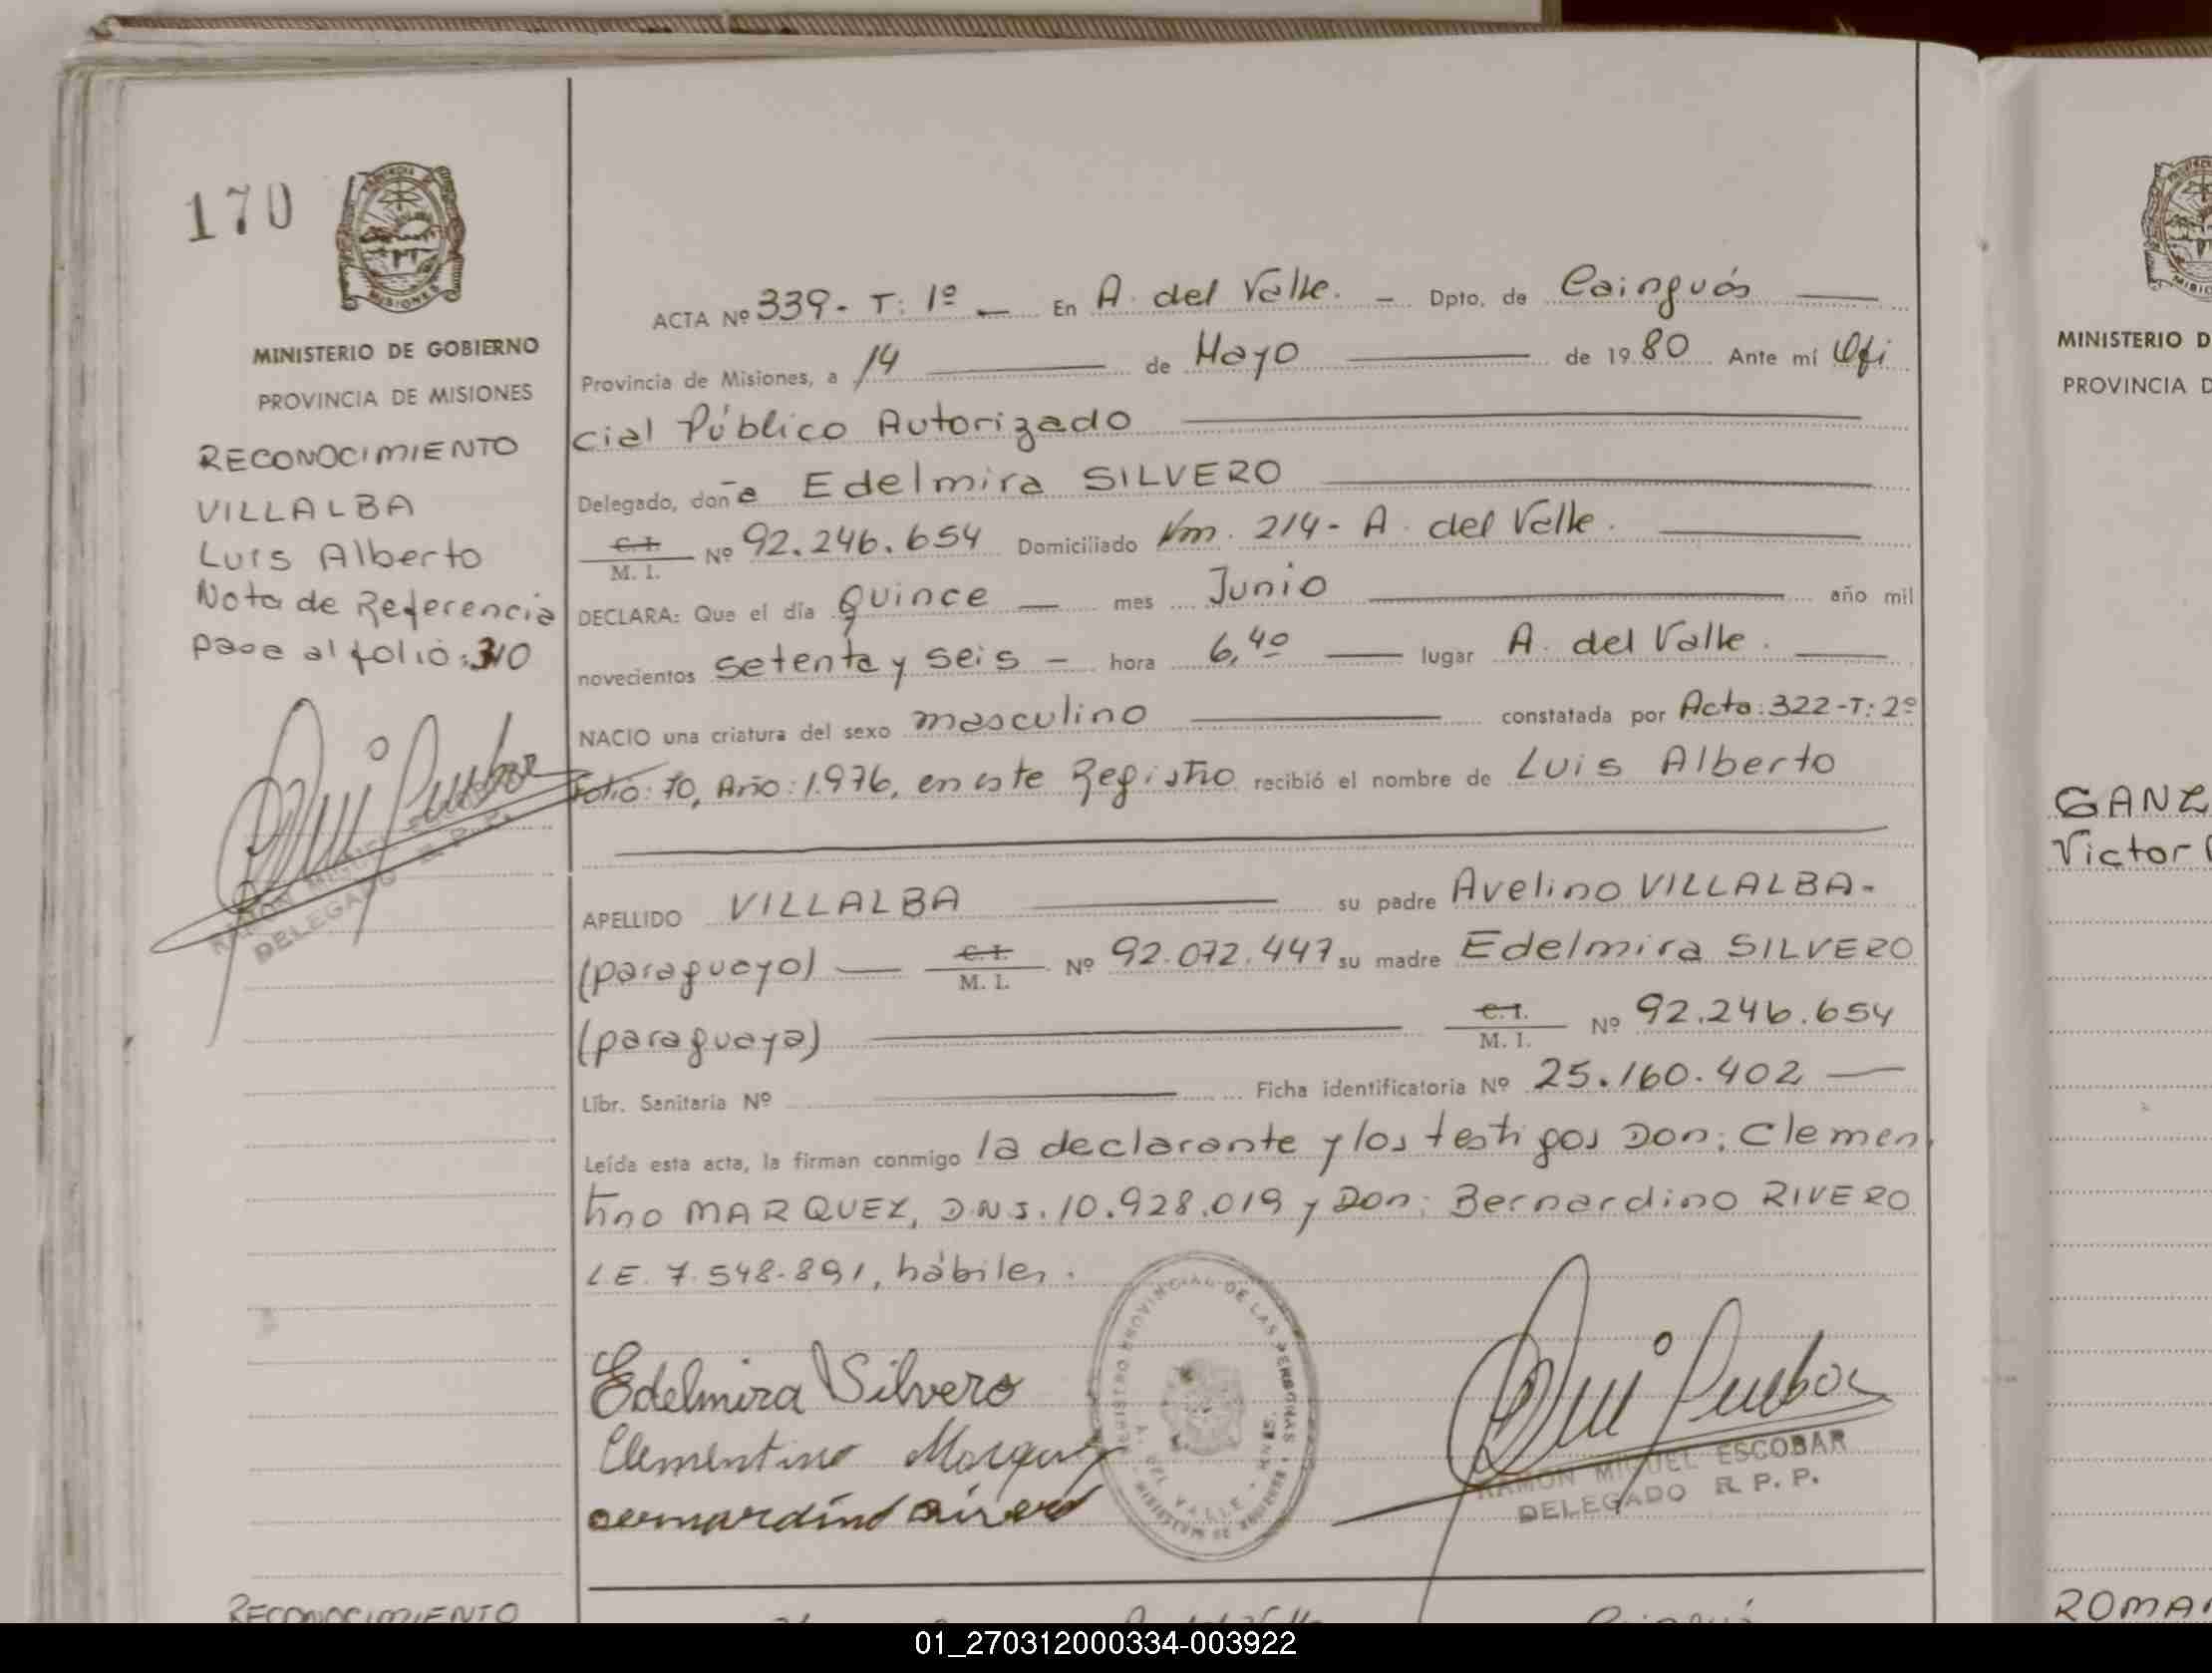 170
MINISTERIO DE GOBIERNO
PROVINCIA DE MISIONES
RECONOCIMIENTO
VILLALBA
Luis Alberto
Nota de Referencia
pasa al folio: 310
RAMON MIGUEL ESCOBAR
DELEGADO R. P. P.
ACTA Nº 339- T: 1º — En A. del Valle. — Dpto. de Cainguás
Provincia de Misiones, a 14 de Mayo de 1980 Ante mí Ofi
cial Público Autorizado
Delegado, doña Edelmira SILVERO
C.I. M. I. Nº 92.246.654 Domiciliado Km. 214- A. del Valle.
DECLARA: Que el día quince — mes Junio año mil
novecientos setenta y seis — hora 6,40 lugar A. del Valle.
NACIO una criatura del sexo masculino constatada por Acta: 322-T: 2º
Folio: 70, Año: 1.976, en este Registro recibió el nombre de Luis Alberto
APELLIDO VILLALBA su padre Avelino VILLALBA-
(paraguayo) — C.I. M. I. Nº 92.072.447 su madre Edelmira SILVERO
(paraguaya) C.I. M. I. Nº 92.246.654
Libr. Sanitaria Nº Ficha identificatoria Nº 25.160.402 —
Leída esta acta, la firman conmigo la declarante y los testigos Don: Clemen
tino MARQUEZ, D.N.I. 10.928.019 y Don: Bernardino RIVERO
L.E. 7.548.891, hábiles.
Edelmira Silvero
Clementino Marquez
REGISTRO PROVINCIAL DE LAS PERSONAS
A. DEL VALLE - MNES.
RAMON MIGUEL ESCOBAR
DELEGADO R. P. P.
RECONOCIMIENTO
MINISTERIO D
PROVINCIA D
Victor
ROMA
01_270312000334-003922